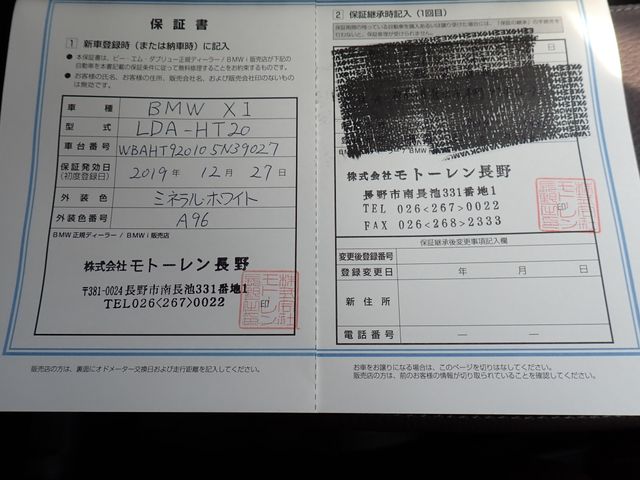 保証書
1 新車登録時(または納車時)に記入
● 本保証書は、ビー・エム・ダブリュー正規ディーラー/BMW i 販売店が下記の
自動車を本書記載の保証条件に従って無料修理することをお約束するものです。
● お客様の氏名、お客様の住所、販売会社名、および販売会社印のないもの
は無効です。
車種 BMW X1
型式 LDA-HT20
車台番号 WBAHT920105N39027
保証発効日 2019年 12月 27日
(初度登録日)
外装色 ミネラル・ホワイト
外装色番号 A96
BMW正規ディーラー/BMW i 販売店
株式会社 モトーレン長野
〒381-0024 長野市南長池331番地1
TEL026<267>0022
印
販売店の方は、裏面にオドメーター交換日および走行距離を記入してください。
2 保証継承時記入(1回目)
日
日
株式会社 モトーレン長野
長野市南長池331番地1
TEL 026<267>0022
FAX 026<268>2333
印
保証継承後変更事項記入欄
変更後登録番号
登録変更日 年 月 日
新住所
電話番号 — —
お車をお譲りになる場合は、このページを切りはなしてください。
販売店の方は、前のお客様の情報が切り取られていることを確認してください。